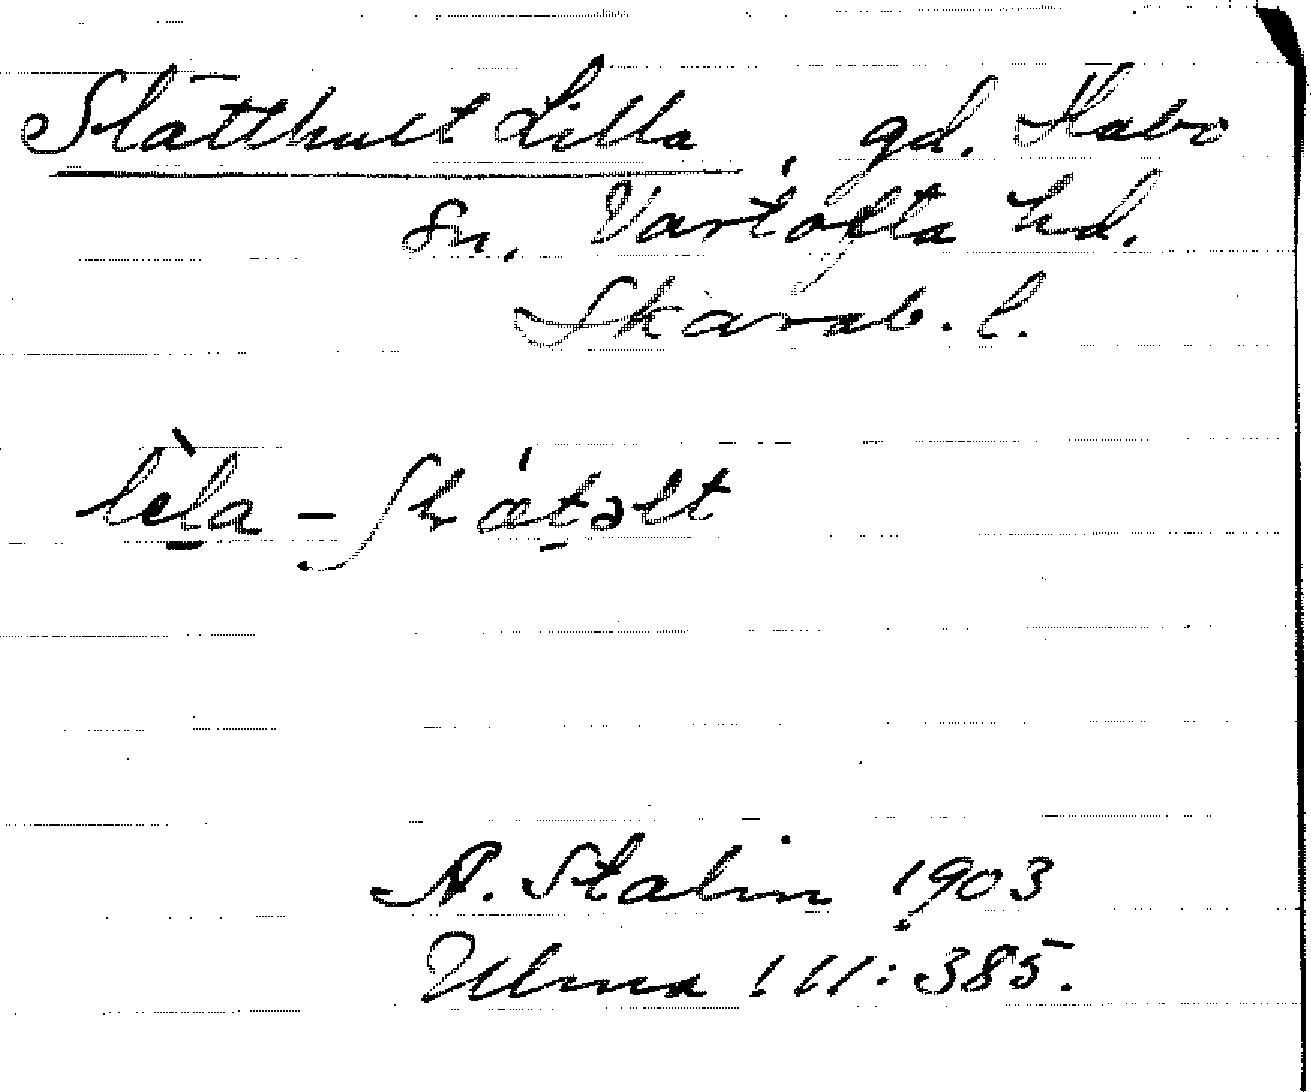 Slätthult Lilla, gd. Habo
sn. Vartofta hd.
Skarab. l.
A. Stalin 1903
Ulma 111:385.